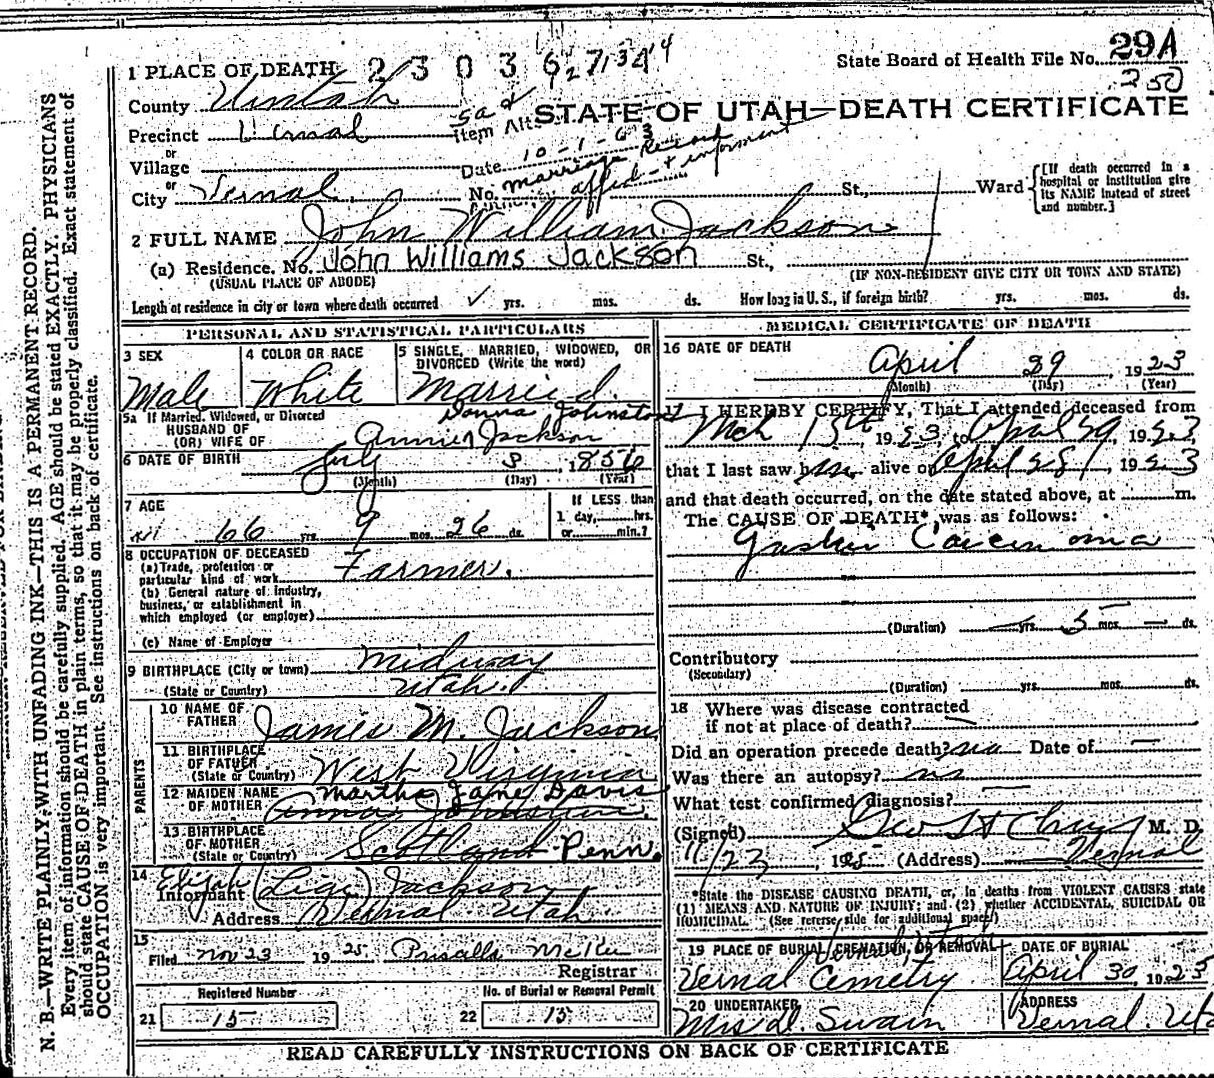 29A
State Board of Health File No.
1 PLACE OF DEATH 2 3 0 3 6
250
County Uintah
STATE OF UTAH—DEATH CERTIFICATE
Precinct Vernal
Item Alt.
or
Village
Date 10-1-63
No. marriage Record
affid - + informant
or
City Vernal St., Ward
[If death occurred in a hospital or institution give its NAME instead of street and number.]
2 FULL NAME John William Jackson
(a) Residence. No. John Williams Jackson St.,
(USUAL PLACE OF ABODE)
(IF NON-RESIDENT GIVE CITY OR TOWN AND STATE)
Length of residence in city or town where death occurred yrs. mos. ds. How long in U. S., if foreign birth? yrs. mos. ds.
PERSONAL AND STATISTICAL PARTICULARS
3 SEX
Male
4 COLOR OR RACE
White
5 SINGLE, MARRIED, WIDOWED, OR DIVORCED (Write the word)
Married
5a If Married, Widowed, or Divorced
HUSBAND OF
(OR) WIFE OF
Johnston
Annie Jackson
6 DATE OF BIRTH July 3, 1856
(Month) (Day) (Year)
7 AGE
66 yrs. 9 mos. 26 ds.
If LESS than
1 day, hrs.
or min.?
8 OCCUPATION OF DECEASED
(a) Trade, profession or
particular kind of work Farmer.
(b) General nature of industry,
business, or establishment in
which employed (or employer)
(c) Name of Employer
9 BIRTHPLACE (City or town) Midway
(State or Country) Utah.
PARENTS
10 NAME OF FATHER James M. Jackson
11 BIRTHPLACE OF FATHER
(State or Country) West Virginia
12 MAIDEN NAME OF MOTHER Martha Jane Davis
Anna Johnston.
13 BIRTHPLACE OF MOTHER
(State or Country) Scotland Penn.
14 Elijah
Informant (Lige) Jackson
Address Vernal Utah
15
Filed Nov 23 1925 McKee
Registrar
Registered Number
21 15
No. of Burial or Removal Permit
22 15
MEDICAL CERTIFICATE OF DEATH
16 DATE OF DEATH
April 29, 1923
(Month) (Day) (Year)
I HEREBY CERTIFY, That I attended deceased from
Mch 15th 1923, to April 29, 1923
that I last saw him alive on April 28, 1923
and that death occurred, on the date stated above, at m.
The CAUSE OF DEATH*, was as follows:
Gastric Carcinoma
(Duration) yrs. 5 mos. — ds.
Contributory
(Secondary)
(Duration) yrs. mos. ds.
18 Where was disease contracted
if not at place of death? —
Did an operation precede death? no Date of —
Was there an autopsy? no
What test confirmed diagnosis?
(Signed) M. D.
11/23, 1925 (Address) Vernal
*State the DISEASE CAUSING DEATH, or, in deaths from VIOLENT CAUSES state
(1) MEANS AND NATURE OF INJURY; and (2) whether ACCIDENTAL, SUICIDAL OR
HOMICIDAL. (See reverse side for additional space)
19 PLACE OF BURIAL, CREMATION, OR REMOVAL
Vernal Cemetry
DATE OF BURIAL
April 30, 1923
20 UNDERTAKER
Mrs D. Swain
ADDRESS
Vernal. Uta
READ CAREFULLY INSTRUCTIONS ON BACK OF CERTIFICATE
N. B.—WRITE PLAINLY, WITH UNFADING INK—THIS IS A PERMANENT RECORD.
Every item of information should be carefully supplied. AGE should be stated EXACTLY. PHYSICIANS
should state CAUSE OF DEATH in plain terms, so that it may be properly classified. Exact statement of
OCCUPATION is very important. See instructions on back of certificate.